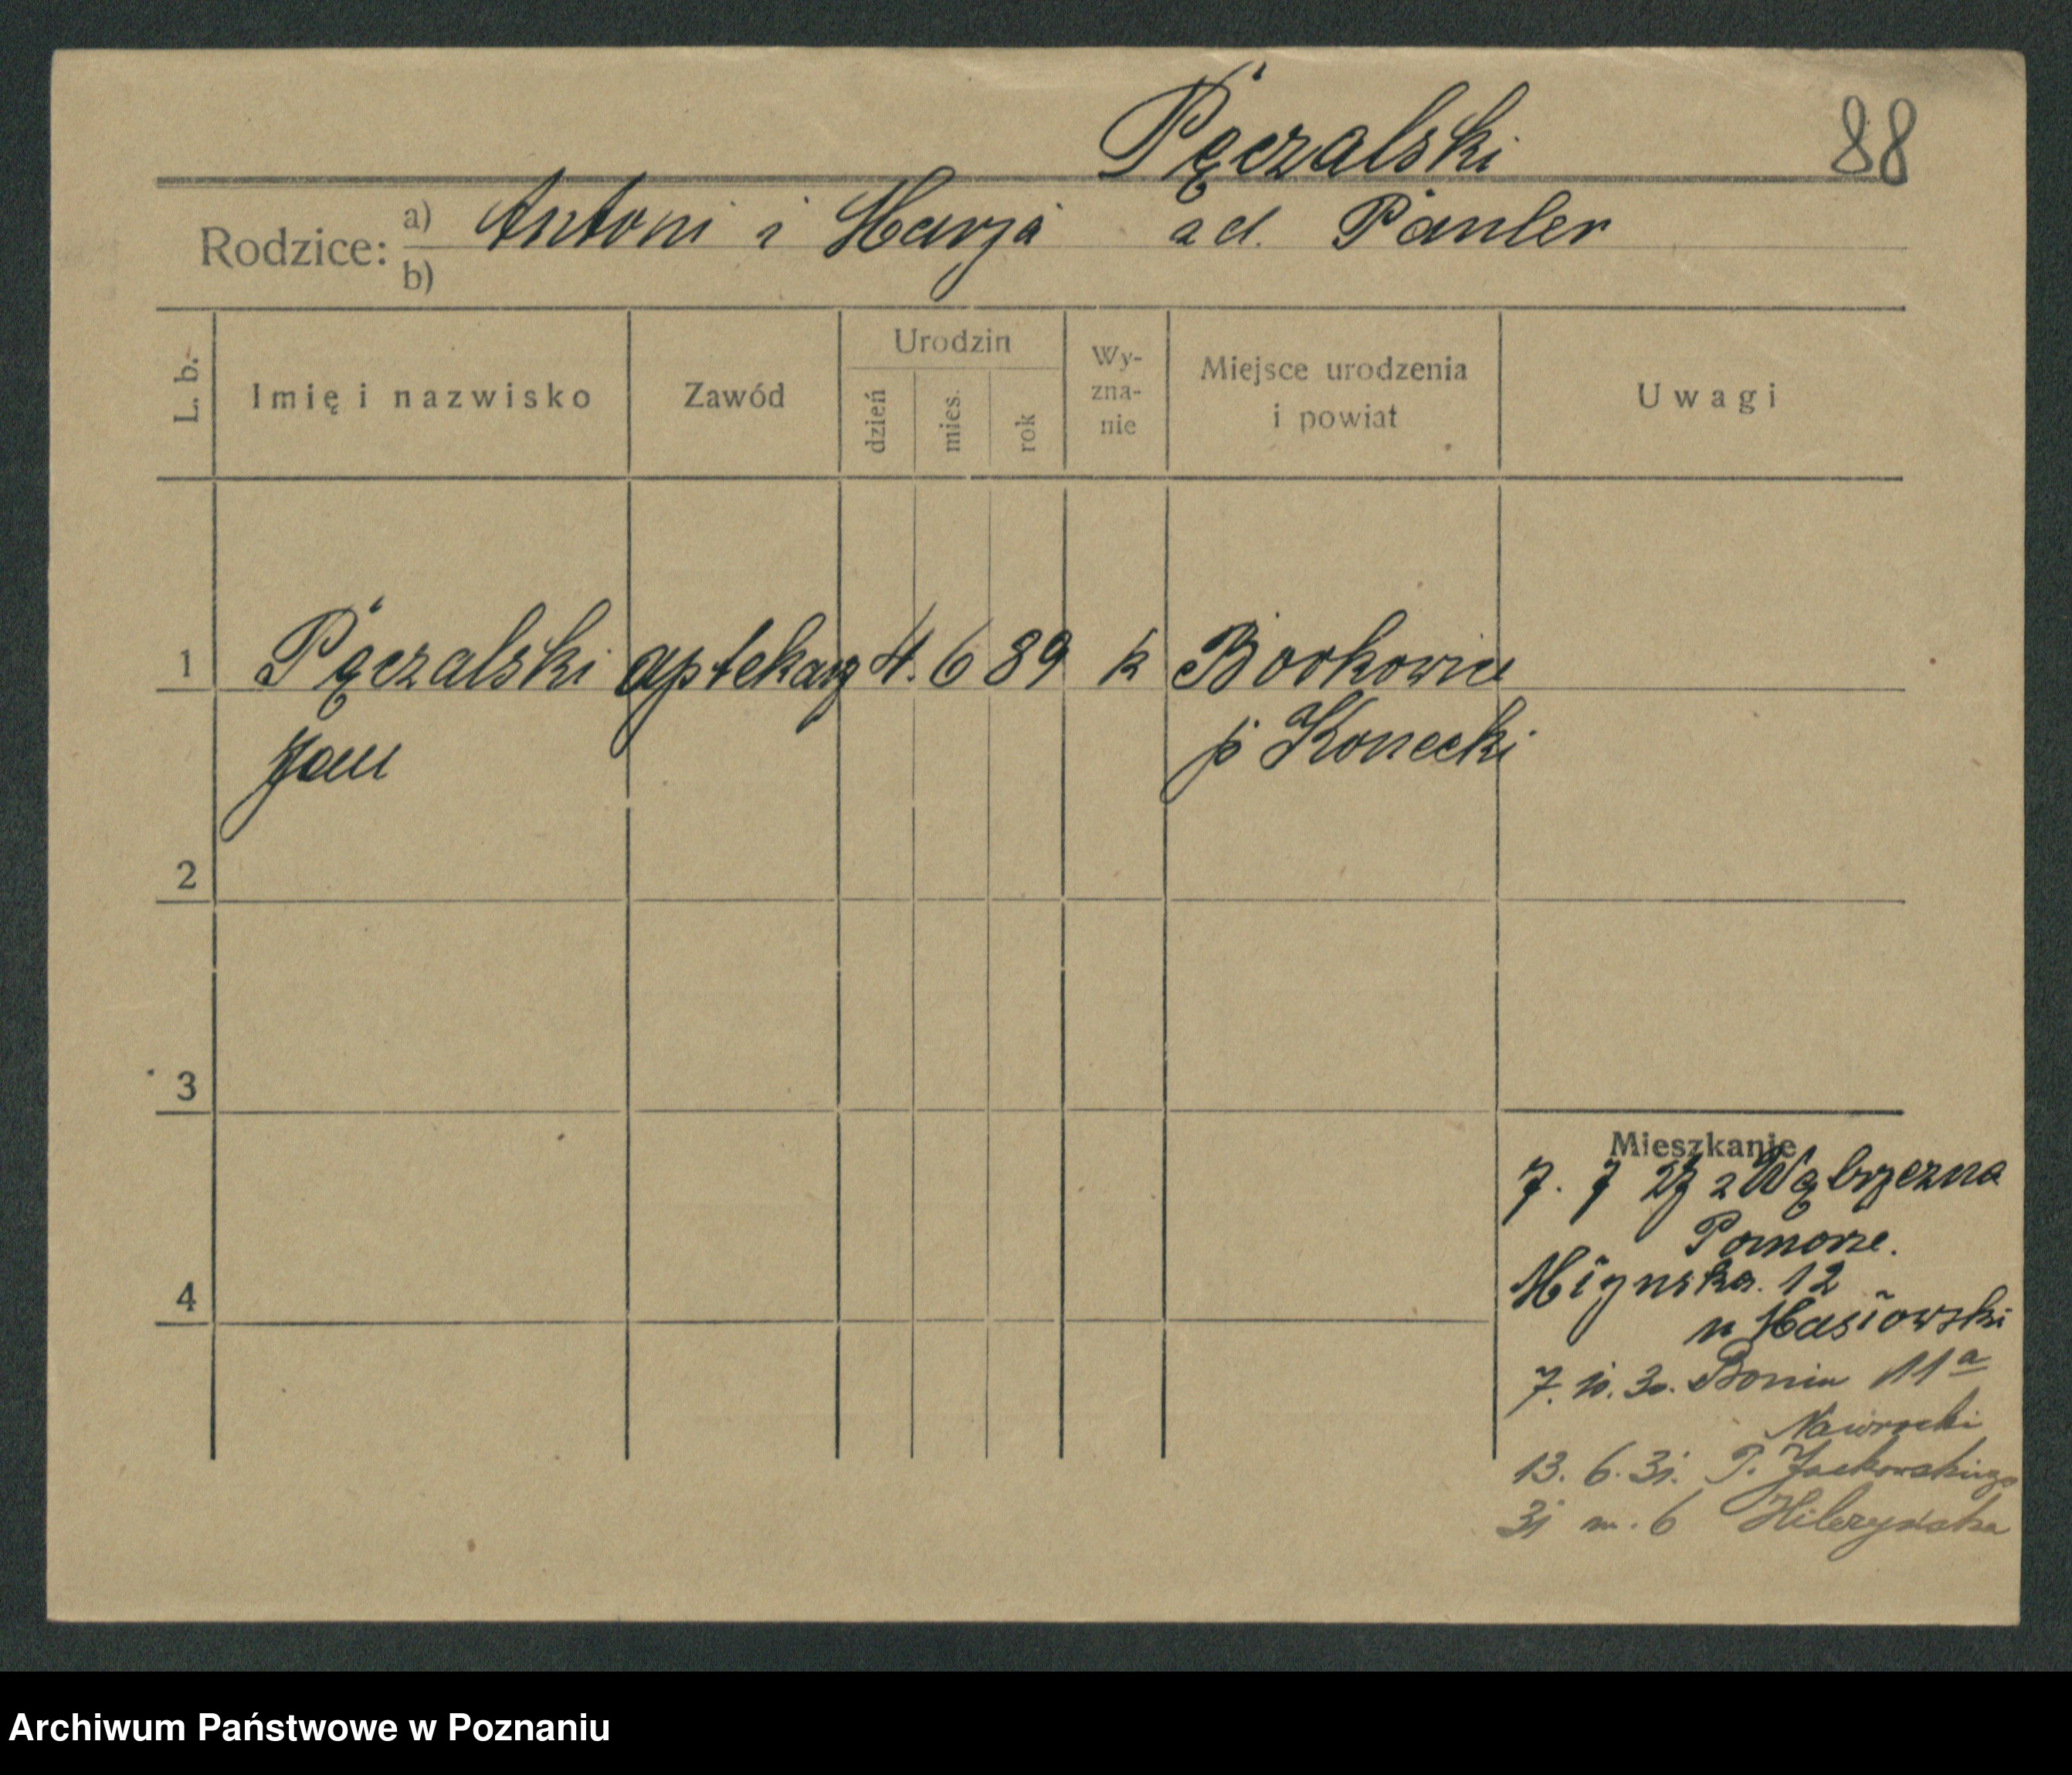 Pęczalski 88
Rodzice: a) Antoni i Marja zd. Panler
b)
L. b. Imię i nazwisko Zawód Urodzin dzień mies. rok Wy-zna-nie Miejsce urodzenia i powiat Uwagi
1 Pęczalski aptekarz 4. 6 89 k Borkowice
Jan p Konecki
2
3
Mieszkanie
7. 7 27 z Wąbrzezna
Pomorze.
4
12
u Masłowski
7. 10. 30. Bonin 11a
Nawrocki
13. 6. 31. P. Jackowskiego
31 m. 6
Archiwum Państwowe w Poznaniu